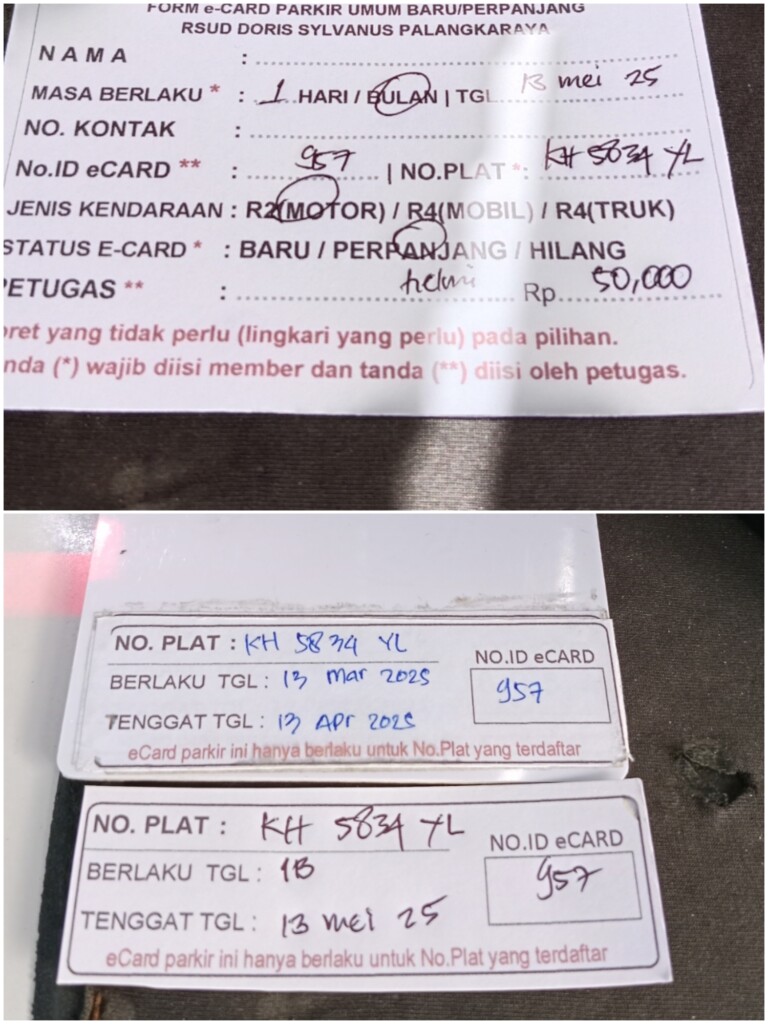 FORM e-CARD PARKIR UMUM BARU/PERPANJANG
RSUD DORIS SYLVANUS PALANGKARAYA
NAMA :
MASA BERLAKU * : 1 HARI / BULAN | TGL 13 mei 25
NO. KONTAK :
No.ID eCARD ** : 957 | NO.PLAT *: KH 5834 YL
JENIS KENDARAAN : R2(MOTOR) / R4(MOBIL) / R4(TRUK)
STATUS E-CARD * : BARU / PERPANJANG / HILANG
PETUGAS ** : helmi Rp 50,000
oret yang tidak perlu (lingkari yang perlu) pada pilihan.
nda (*) wajib diisi member dan tanda (**) diisi oleh petugas.
NO. PLAT : KH 5834 YL
NO.ID eCARD
BERLAKU TGL : 13 Mar 2025
957
TENGGAT TGL : 13 Apr 2025
eCard parkir ini hanya berlaku untuk No.Plat yang terdaftar
NO. PLAT : KH 5834 YL
NO.ID eCARD
BERLAKU TGL : 13
957
TENGGAT TGL : 13 mei 25
eCard parkir ini hanya berlaku untuk No.Plat yang terdaftar